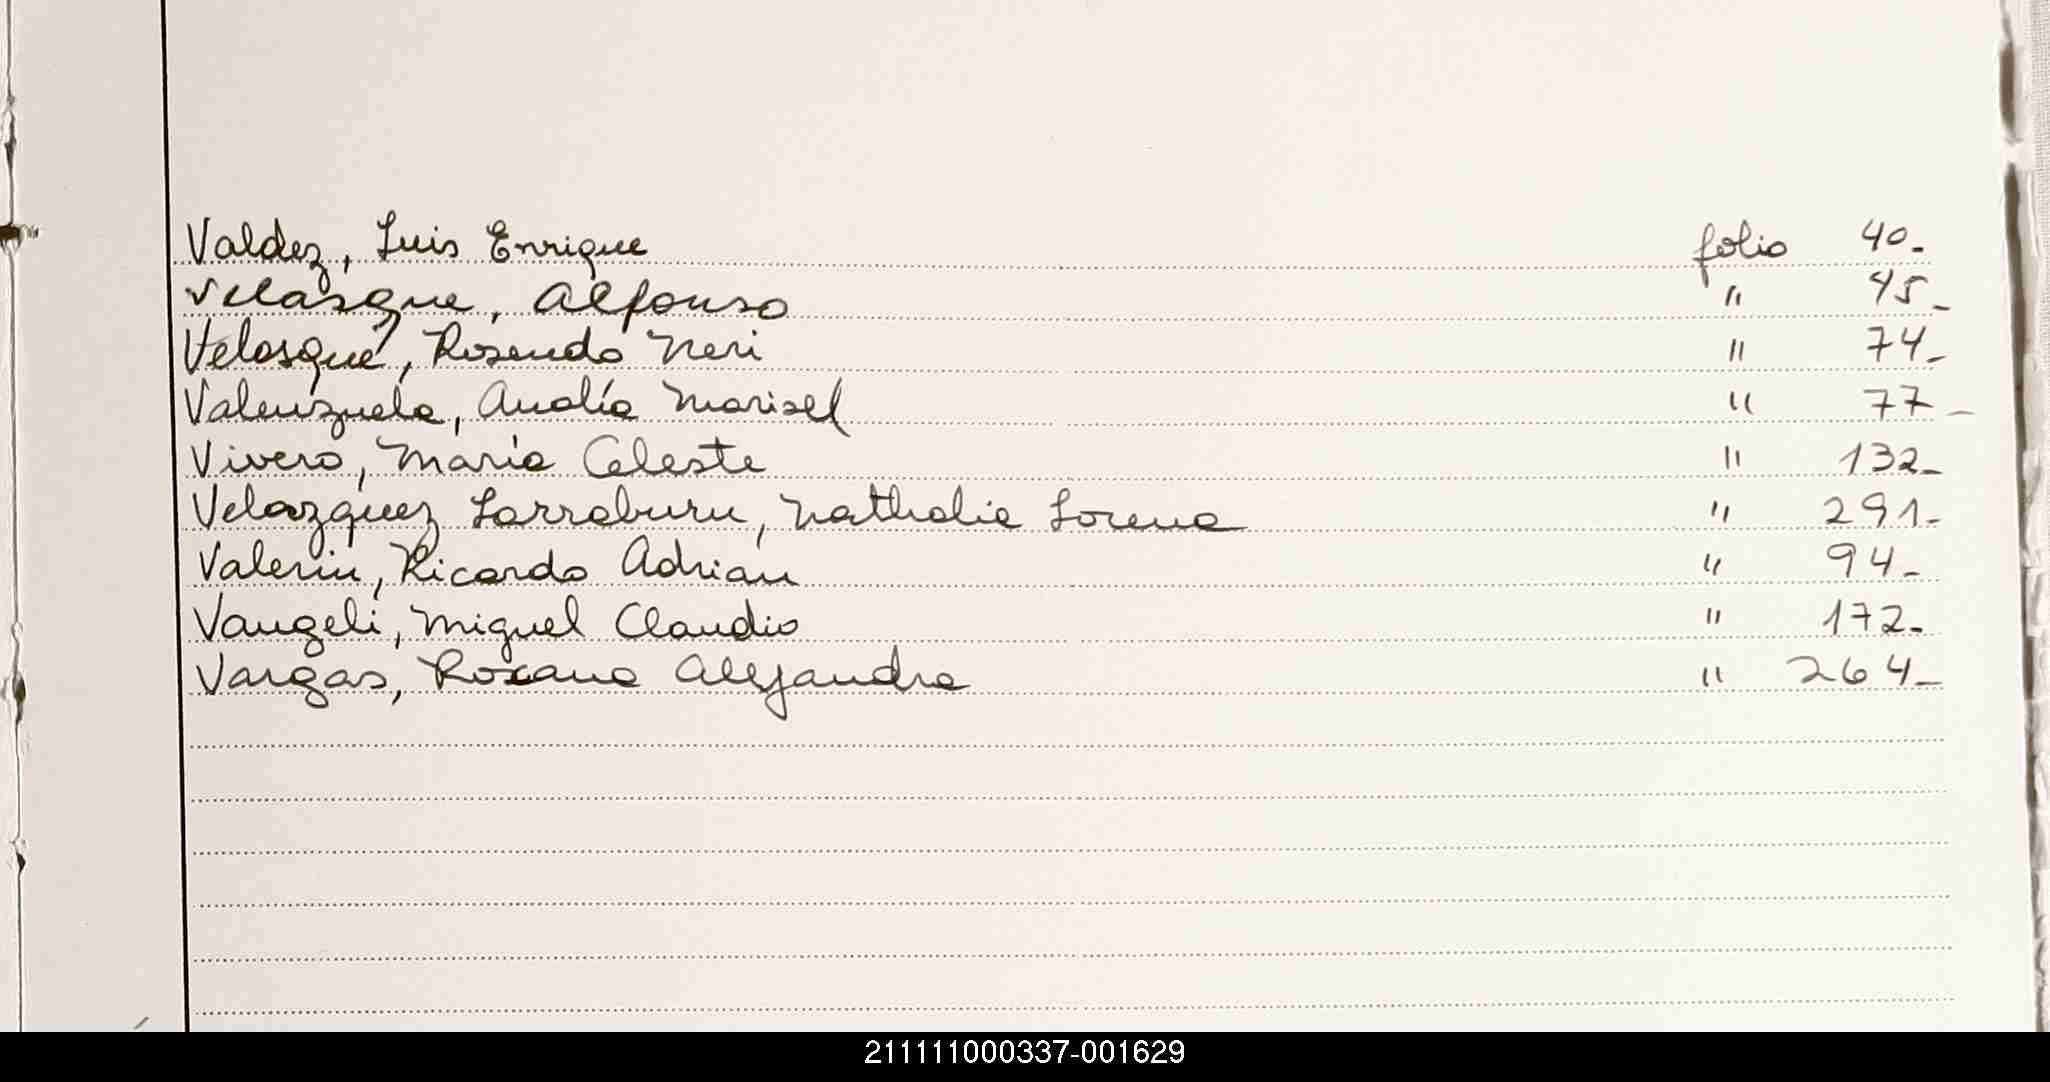 Valdez, Luis Enrique folio 40.-
Velasque, Alfonso " 45.-
Velasque, Rosendo Neri " 74.-
Valenzuela, Analía Marisel " 77.-
Vivero, María Celeste " 132.-
Velazquez Larraburu, Nathalie Lorena " 291.-
Valerin, Ricardo Adrian " 94.-
Vangeli, Miguel Claudio " 172.-
Vargas, Roxana Alejandra " 264.-
211111000337-001629